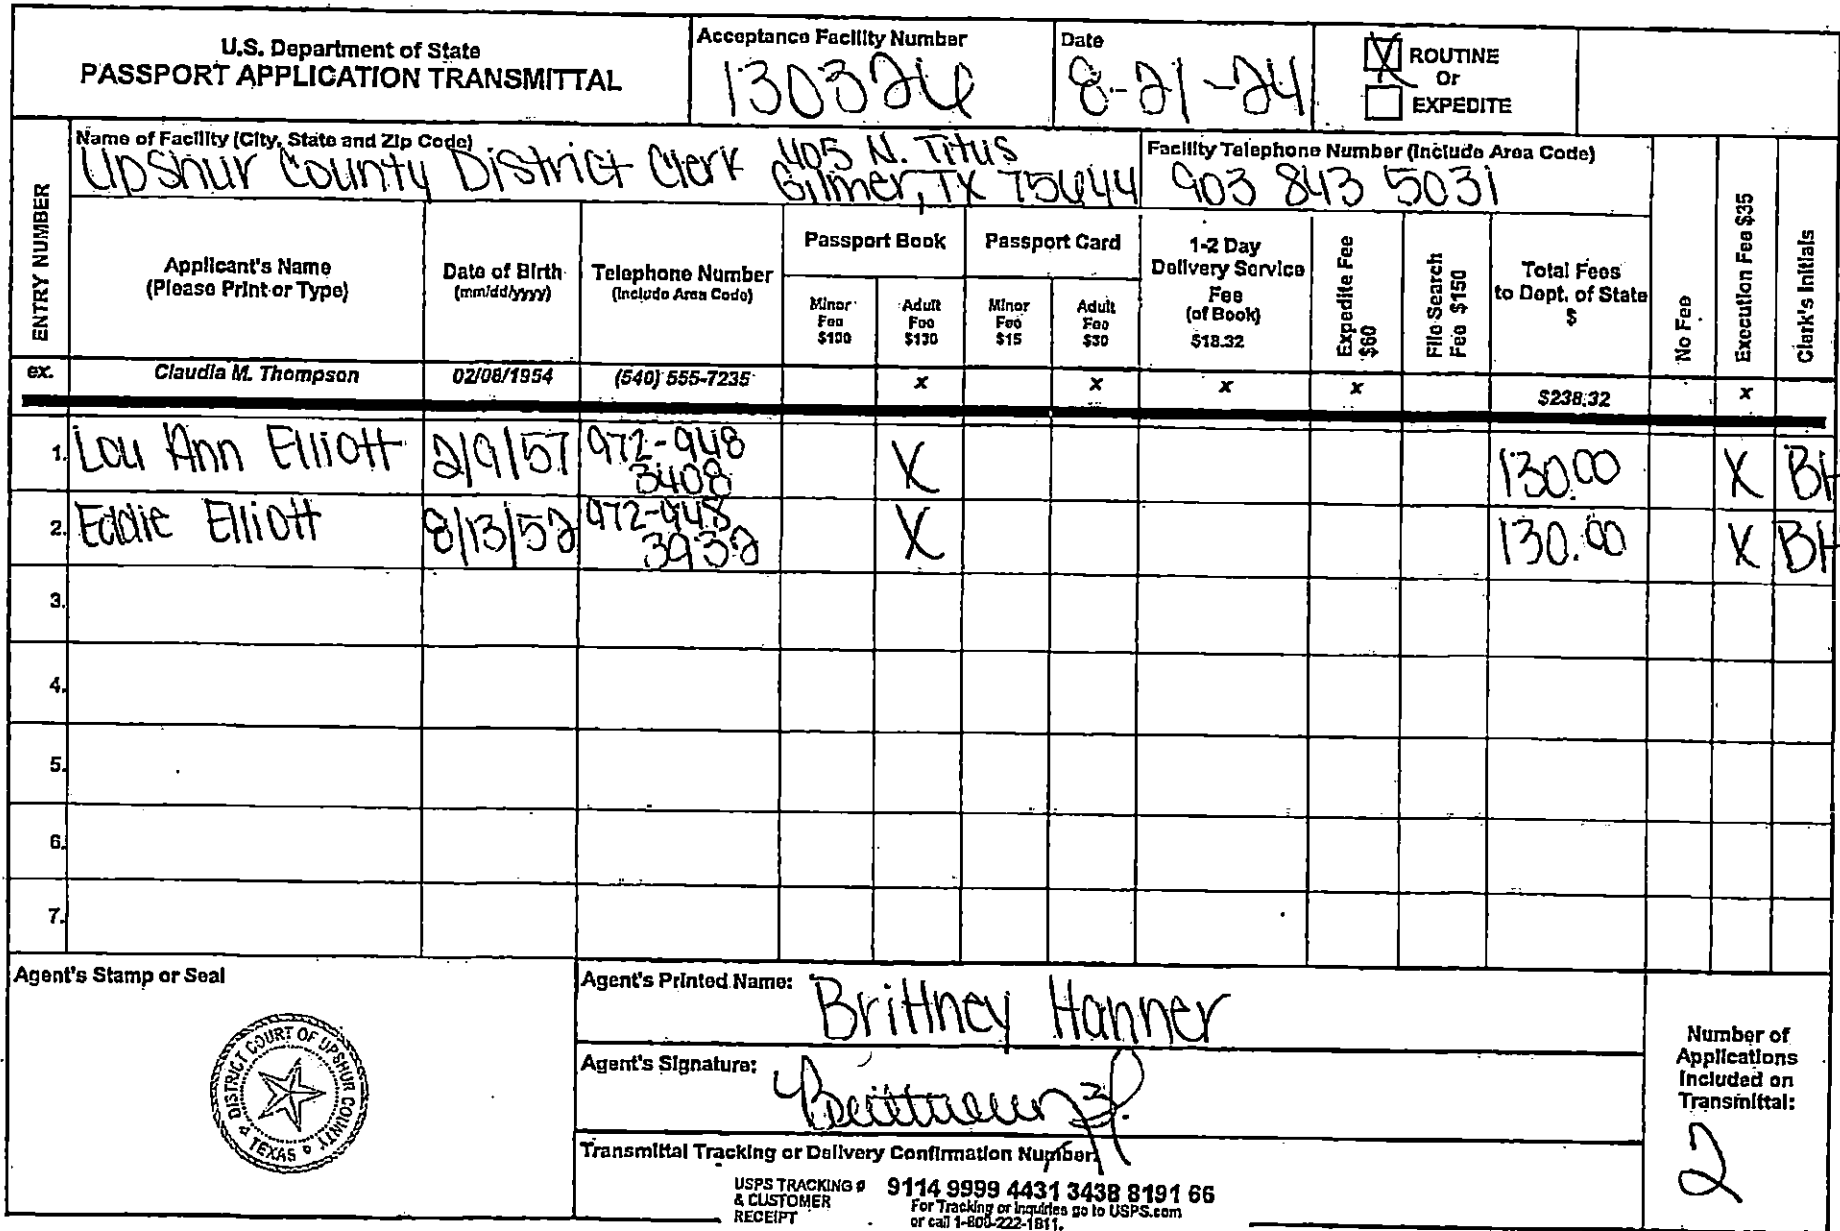 U.S. Department of State
PASSPORT APPLICATION TRANSMITTAL
Acceptance Facility Number
130326
Date
8-21-24
X ROUTINE
Or
EXPEDITE
ENTRY NUMBER
Name of Facility (City, State and Zip Code)
Upshur County District Clerk 405 N. Titus
Gilmer, TX 75644
Facility Telephone Number (Include Area Code)
903 843 5031
Applicant's Name
(Please Print or Type)
Date of Birth
(mm/dd/yyyy)
Telephone Number
(Include Area Code)
Passport Book
Minor Fee $100
Adult Fee $130
Passport Card
Minor Fee $15
Adult Fee $30
1-2 Day
Delivery Service
Fee
(of Book)
$18.32
Expedite Fee $60
File Search Fee $150
Total Fees
to Dept. of State
$
No Fee
Execution Fee $35
Clerk's Initials
ex. Claudia M. Thompson 02/08/1954 (540) 555-7235 x x x x $238.32 x
1. Lou Ann Elliott 2/9/57 972-948 3408 X 130.00 X BH
2. Eddie Elliott 8/13/52 972-948 3932 X 130.00 X BH
3.
4.
5.
6.
7.
Agent's Stamp or Seal
DISTRICT COURT OF UPSHUR COUNTY
TEXAS
Agent's Printed Name: Brittney Hanner
Agent's Signature:
Transmittal Tracking or Delivery Confirmation Number:
USPS TRACKING #
& CUSTOMER
RECEIPT
9114 9999 4431 3438 8191 66
For Tracking or Inquiries go to USPS.com
or call 1-800-222-1811.
Number of
Applications
Included on
Transmittal:
2